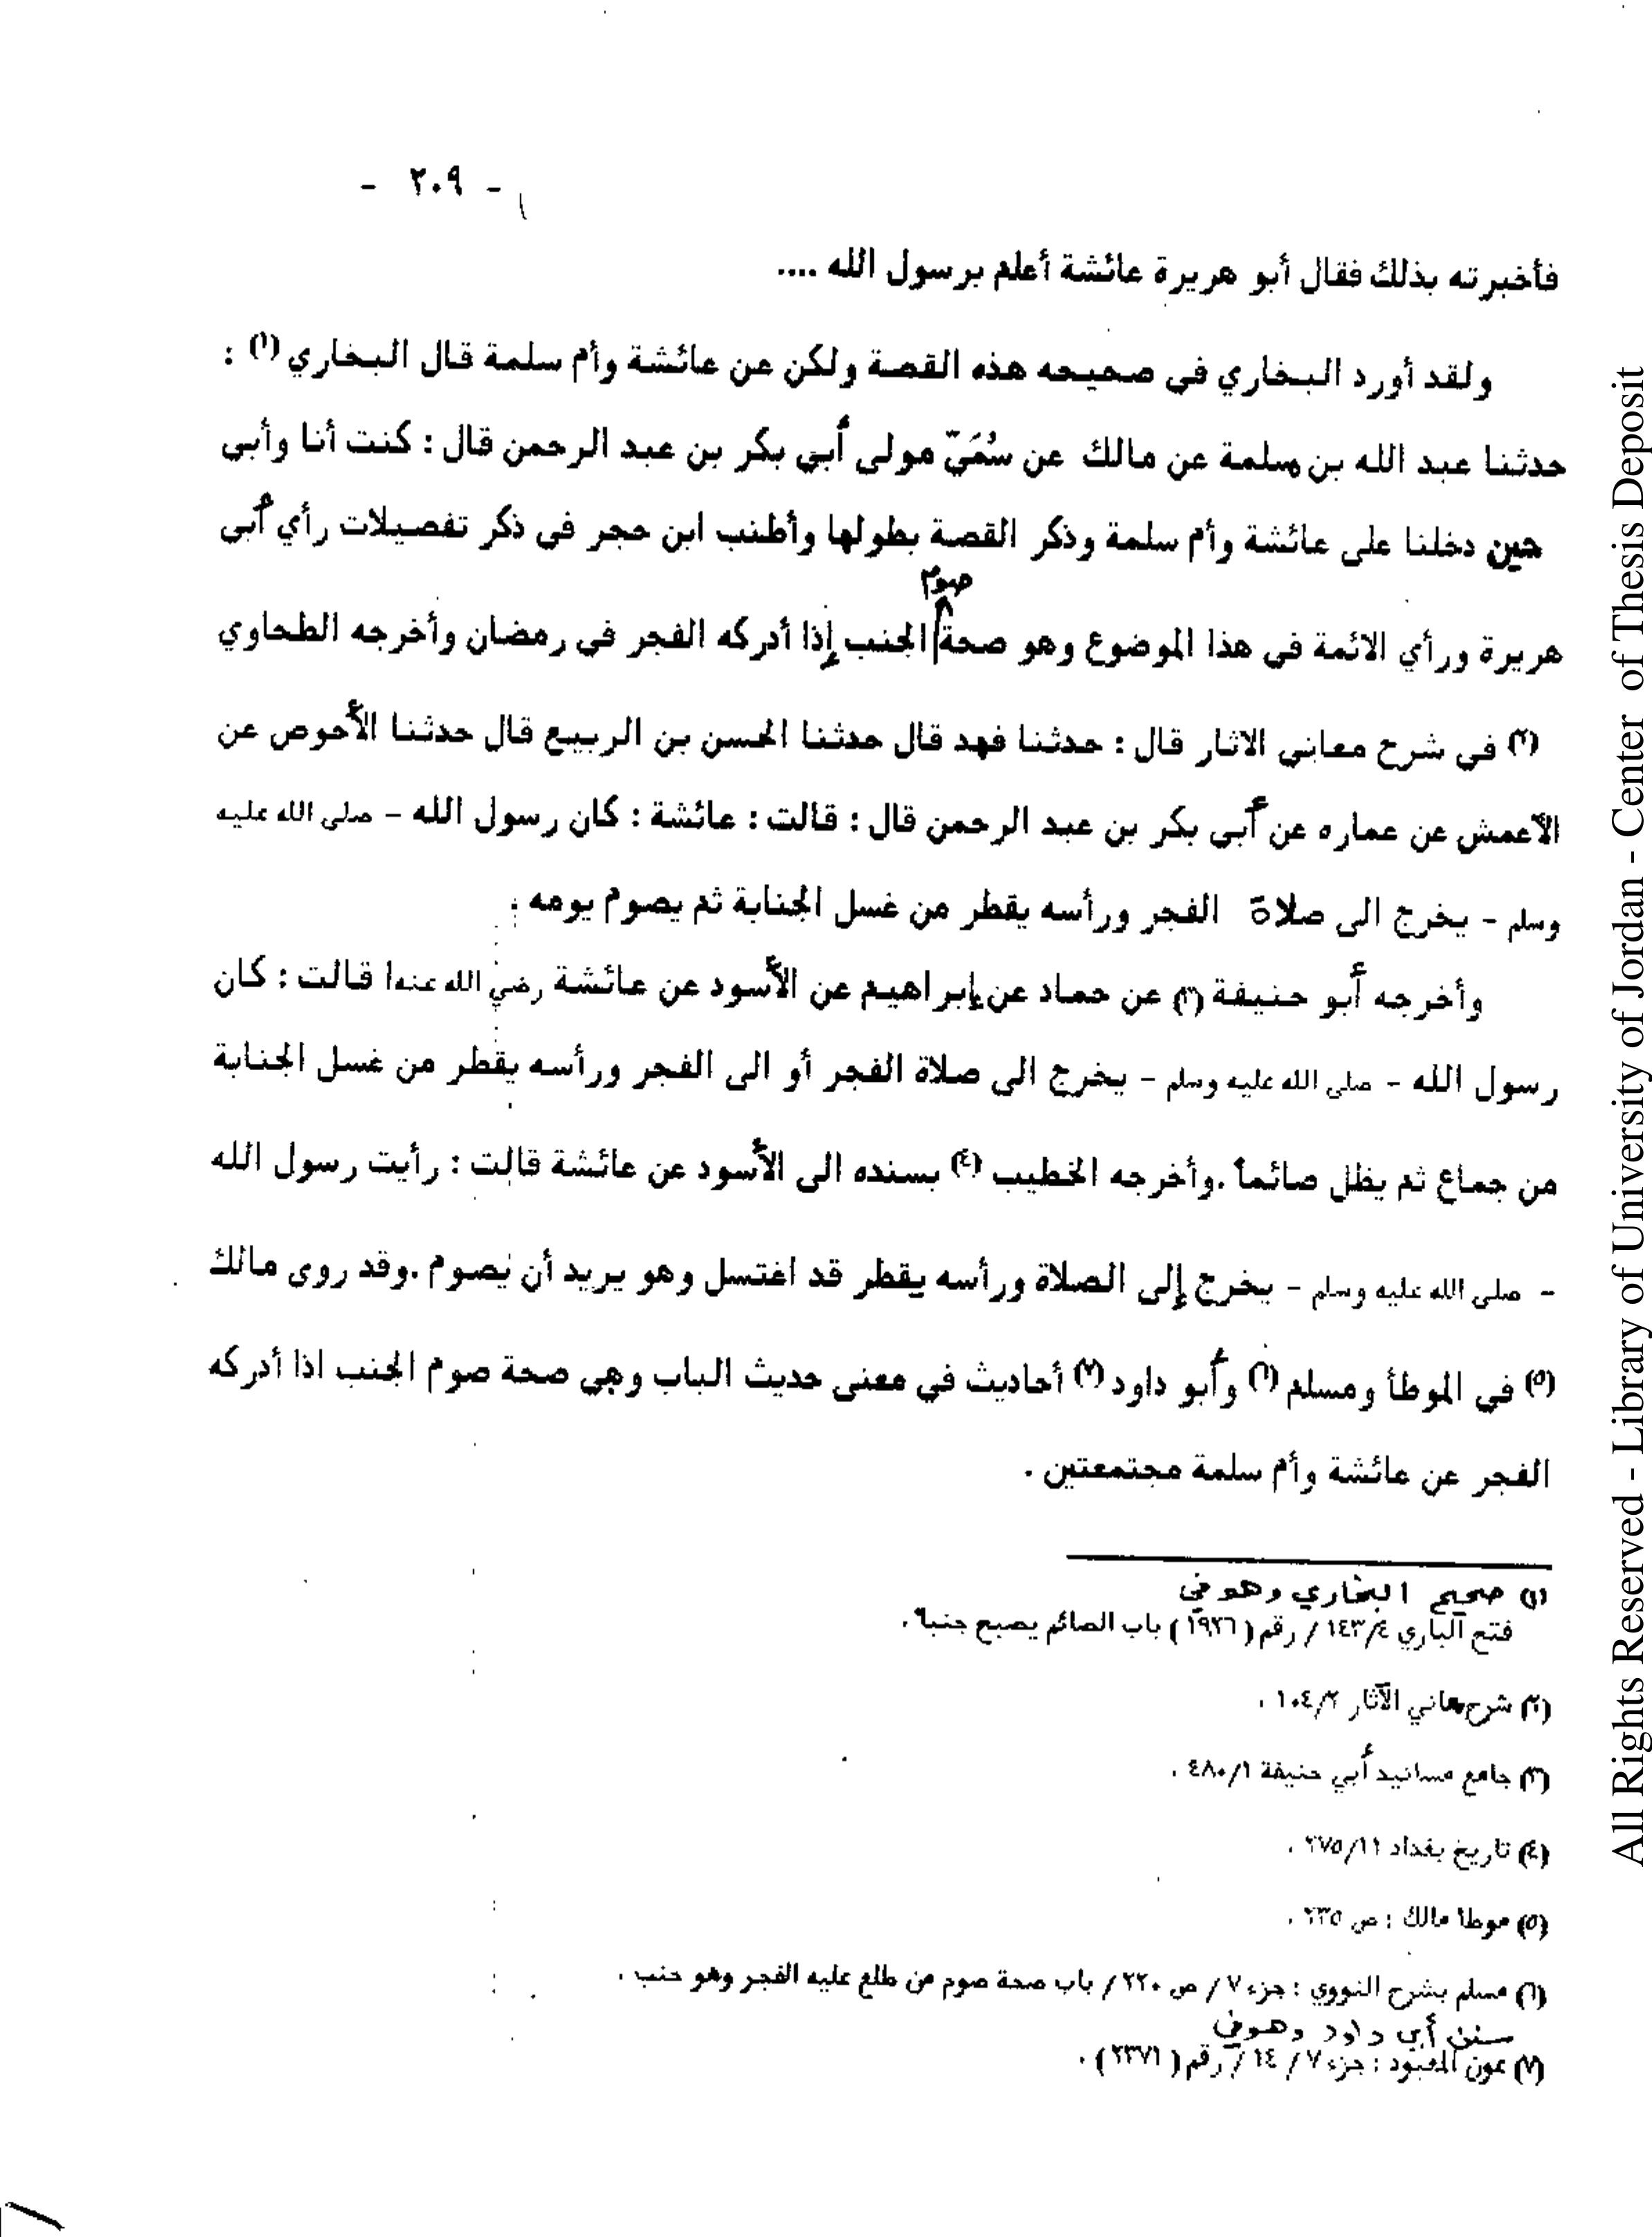 - ٢٠٩ -
فأخبرته بذلك فقال أبو هريرة عائشة أعلم برسول الله ....
ولقد أورد البخاري في صحيحه هذه القصة ولكن عن عائشة وأم سلمة قال البخاري (١) :
حدثنا عبد الله بن مسلمة عن مالك عن سُمَيّ مولى أبي بكر بن عبد الرحمن قال : كنت أنا وأبي
حين دخلنا على عائشة وأم سلمة وذكر القصة بطولها وأطنب ابن حجر في ذكر تفصيلات رأي أبي
هريرة ورأي الائمة في هذا الموضوع وهو صحة صوم الجنب إذا أدركه الفجر في رمضان وأخرجه الطحاوي
(٢) في شرح معاني الاثار قال : حدثنا فهد قال حدثنا الحسن بن الربيع قال حدثنا الأحوص عن
الأعمش عن عماره عن أبي بكر بن عبد الرحمن قال : قالت : عائشة : كان رسول الله - صلى الله عليه
وسلم - يخرج الى صلاة الفجر ورأسه يقطر من غسل الجنابة ثم يصوم يومه .
وأخرجه أبو حنيفة (٣) عن حماد عن إبراهيم عن الأسود عن عائشة رضي الله عنها قالت : كان
رسول الله - صلى الله عليه وسلم - يخرج الى صلاة الفجر أو الى الفجر ورأسه يقطر من غسل الجنابة
من جماع ثم يظل صائماً . وأخرجه الخطيب (٤) بسنده الى الأسود عن عائشة قالت : رأيت رسول الله
- صلى الله عليه وسلم - يخرج إلى الصلاة ورأسه يقطر قد اغتسل وهو يريد أن يصوم . وقد روى مالك
(٥) في الموطأ ومسلم (٦) وأبو داود (٧) أحاديث في معنى حديث الباب وهي صحة صوم الجنب اذا أدركه
الفجر عن عائشة وأم سلمة مجتمعتين .
(١) صحيح البخاري وهو في
فتح الباري ١٤٣/٤ / رقم ( ١٩٢٦ ) باب الصائم يصبح جنباً .
(٢) شرح معاني الآثار ١٠٤/٢ .
(٣) جامع مسانيد أبي حنيفة ٤٨٠/١ .
(٤) تاريخ بغداد ٢٧٥/١١ .
(٥) موطأ مالك : ص ٢٣٥ .
(٦) مسلم بشرح النووي : جزء ٧ / ص ٢٢٠ / باب صحة صوم من طلع عليه الفجر وهو جنب .
سنن أبي داود وهو في
(٧) عون المعبود : جزء ٧ / ١٤ / رقم ( ٢٣٧١ ) .
All Rights Reserved - Library of University of Jordan - Center of Thesis Deposit